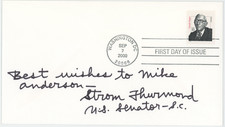 WASHINGTON DC
SEP
7
2000
20066
FIRST DAY OF ISSUE
Best wishes to Mike
anderson—
Strom Thurmond
U.S. Senator-S.C.